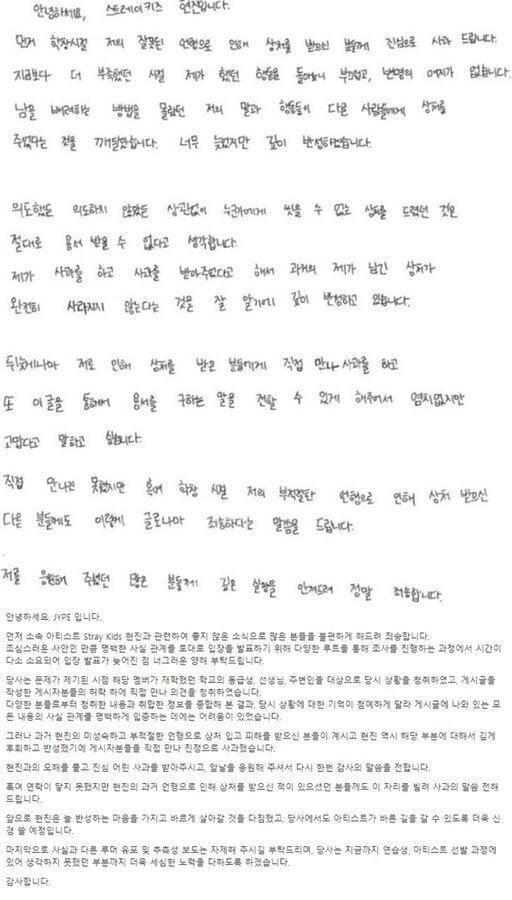 안녕하세요, 스트레이키즈 현진입니다.
먼저 학창시절 저의 잘못된 언행으로 인해 상처를 받으신 분들께 진심으로 사과 드립니다.
지금보다 더 부족했던 시절 제가 했던 행동을 돌아보니 부끄럽고, 변명의 여지가 없습니다.
남을 배려하는 방법을 몰랐던 저의 말과 행동들이 다른 사람들에게 상처를
주었다는 것을 깨달았습니다. 너무 늦었지만 깊이 반성하겠습니다.
의도했든 의도하지 않았든 상관없이 누군가에게 씻을 수 없는 상처를 드렸던 것은
절대로 용서 받을 수 없다고 생각합니다.
제가 사과를 하고 사과를 받아주셨다고 해서 과거의 제가 남긴 상처가
완전히 사라지지 않는다는 것을 잘 알기에 깊이 반성하고 있습니다.
뒤늦게나마 저로 인해 상처를 받은 분들에게 직접 만나 사과를 하고
또 이글을 통해서 용서를 구하는 말을 전할 수 있게 해주어서 염치없지만
고맙다고 말하고 싶습니다.
직접 만나진 못했지만 혹여 학창 시절 저의 부적절한 언행으로 인해 상처 받으신
다른 분들께도 이렇게 글로나마 죄송하다는 말씀을 드립니다.
저를 응원해 주셨던 많은 분들께 깊은 실망을 안겨드려 정말 죄송합니다.
안녕하세요, JYPE 입니다.
먼저 소속 아티스트 Stray Kids 현진과 관련하여 좋지 않은 소식으로 많은 분들을 불편하게 해드려 죄송합니다.
조심스러운 사안인 만큼 명백한 사실 관계를 토대로 입장을 발표하기 위해 다양한 루트를 통해 조사를 진행하는 과정에서 시간이
다소 소요되어 입장 발표가 늦어진 점 너그러운 양해 부탁드립니다.
당사는 문제가 제기된 시점 해당 멤버가 재학했던 학교의 동급생, 선생님, 주변인을 대상으로 당시 상황을 청취하였고, 게시글을
작성한 게시자분들의 허락 하에 직접 만나 의견을 청취하였습니다.
다양한 분들로부터 청취한 내용과 취합한 정보를 종합해 본 결과, 당시 상황에 대한 기억이 첨예하게 달라 게시글에 나와 있는 모
든 내용의 사실 관계를 명백하게 입증하는 데에는 어려움이 있었습니다.
그러나 과거 현진의 미성숙하고 부적절한 언행으로 상처 입고 피해를 받으신 분들이 계시고 현진 역시 해당 부분에 대해서 깊게
후회하고 반성했기에 게시자분들을 직접 만나 진정으로 사과했습니다.
현진과의 오해를 풀고 진심 어린 사과를 받아주시고, 앞날을 응원해 주셔서 다시 한번 감사의 말씀을 전합니다.
혹여 연락이 닿지 못했지만 현진의 과거 언행으로 인해 상처를 받으신 적이 있으셨던 분들께도 이 자리를 빌려 사과의 말씀 전해
드립니다.
앞으로 현진은 늘 반성하는 마음을 가지고 바르게 살아갈 것을 다짐했고, 당사에서도 아티스트가 바른 길을 갈 수 있도록 더욱 신
경 쓸 예정입니다.
마지막으로 사실과 다른 루머 유포 및 추측성 보도는 자제해 주시길 부탁드리며, 당사는 지금까지 연습생, 아티스트 선발 과정에
있어 생각하지 못했던 부분까지 더욱 세심한 노력을 다하도록 하겠습니다.
감사합니다.